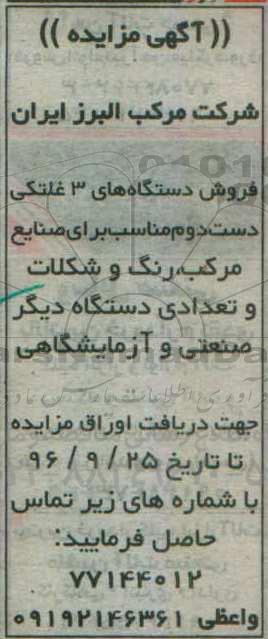 (( آگهی مزایده ))
شرکت مرکب البرز ایران
فروش دستگاه‌های ۳ غلتکی
دست‌دوم‌مناسب‌برای‌صنایع
مرکب،رنگ و شکلات
و تعدادی دستگاه دیگر
صنعتی و آزمایشگاهی
جهت دریافت اوراق مزایده
تا تاریخ ۹۶ / ۹ / ۲۵
با شماره های زیر تماس
حاصل فرمایید:
۷۷۱۴۴۰۱۲
واعظی ۰۹۱۹۲۱۴۶۳۶۱